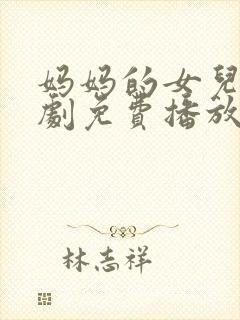 妈妈的女兒
劇免費播放
林志祥